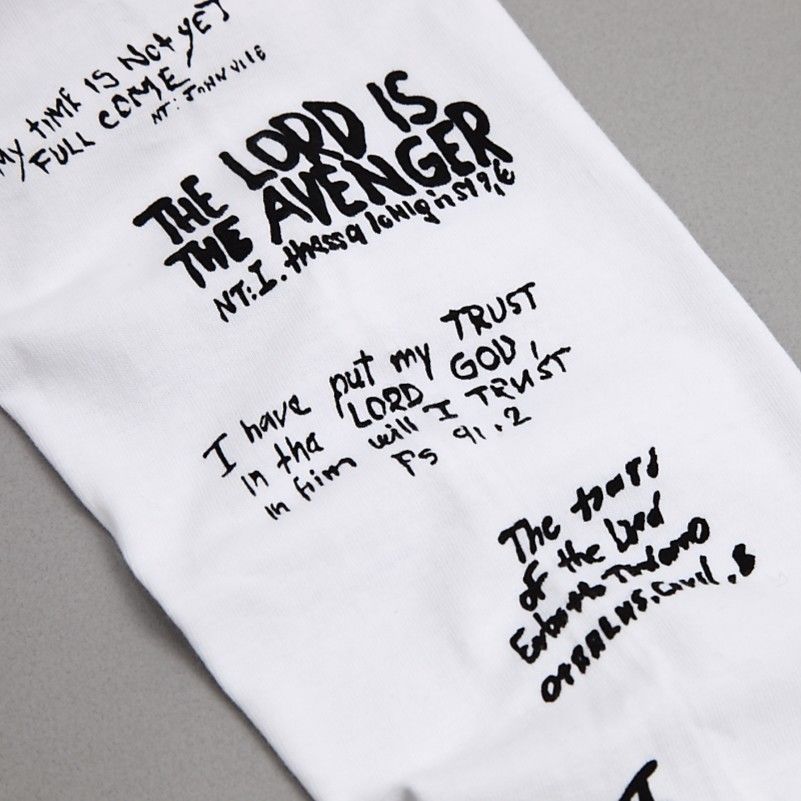 MY TIME IS NOT YET
FULL COME
NT: JOHN VII 6
THE LORD IS
THE AVENGER
NT: I. thessalonians
I have put my TRUST
in the LORD GOD,
in him will I TRUST
PS 91.2
The
of the Lord